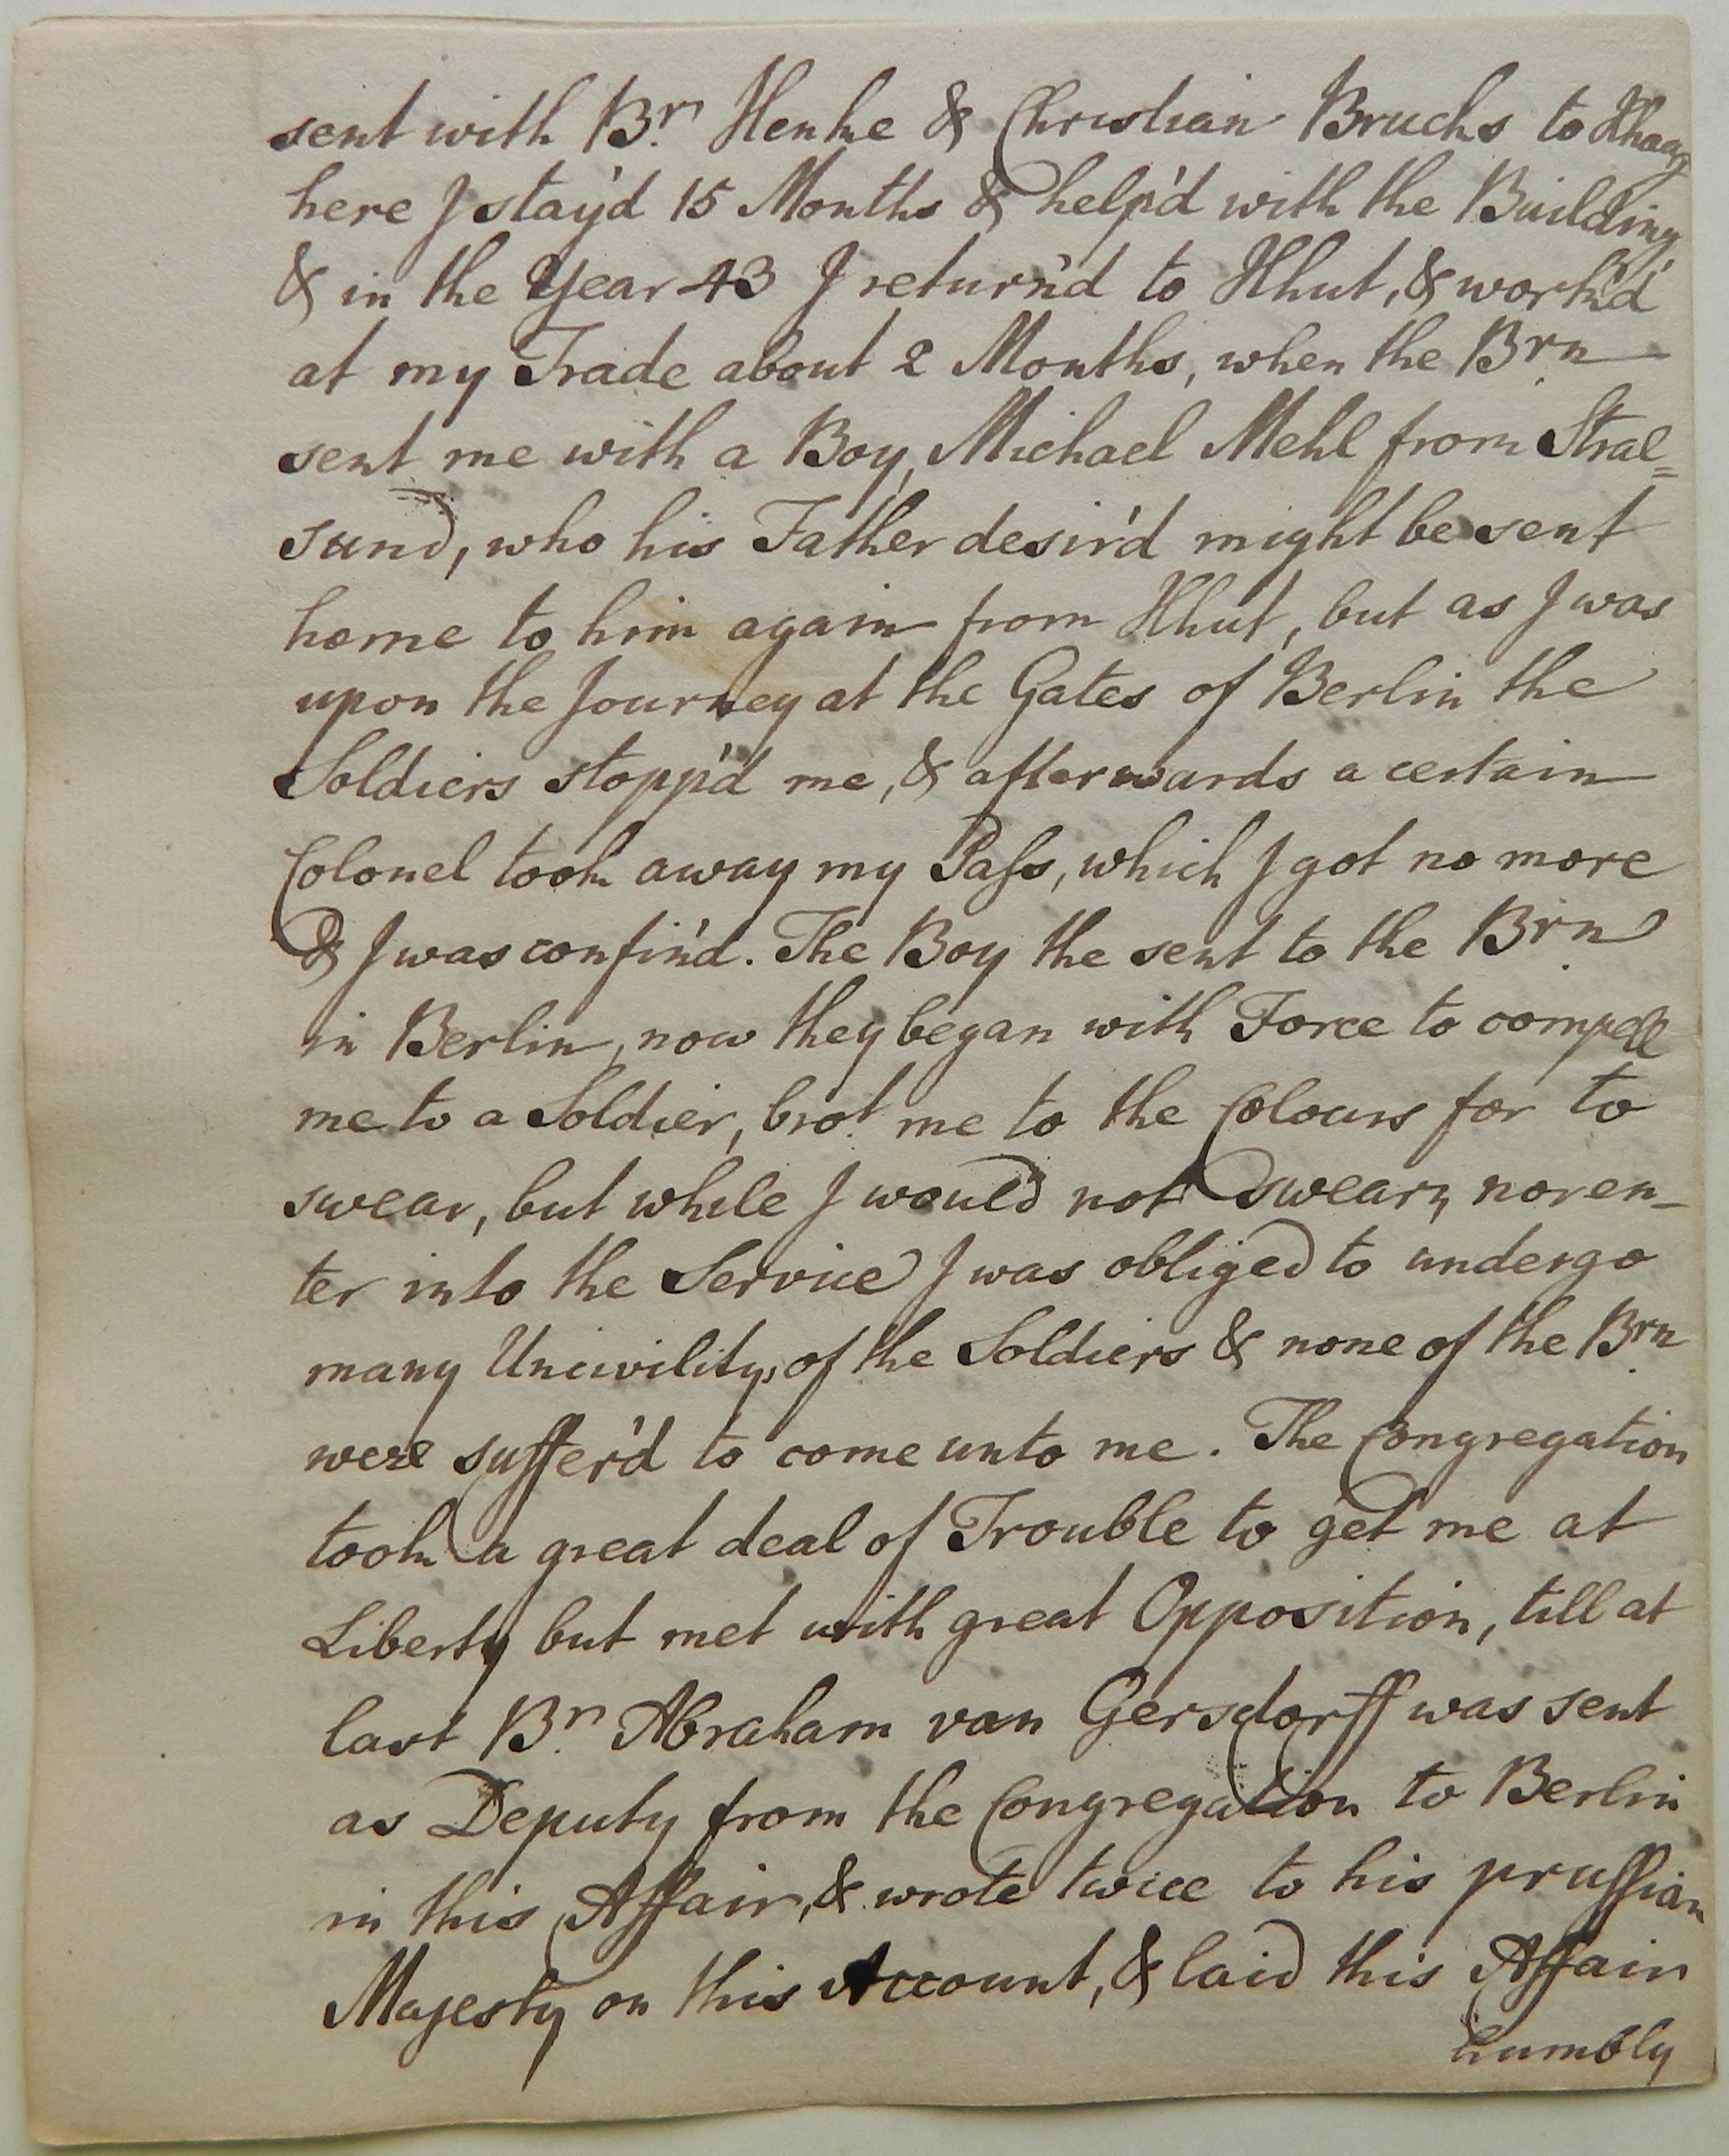 sent with Br. Henke & Christian Bruchs to Hhaag
here I stay'd 15 Months & help'd with the Building,
& in the Year 43 I return'd to Hhut, & work'd
at my Trade about 2 Months, when the Brn
sent me with a Boy, Michael Mehl from Stral=
sund, who his Father desir'd might be sent
home to him again from Hhut, but as I was
upon the Journey at the Gates of Berlin the
Soldiers stopp'd me, & afterwards a certain
Colonel took away my Pass, which I got no more
& I was confin'd. The Boy the sent to the Brn
in Berlin, now they began with Force to compell
me to a Soldier, brot me to the Colours for to
swear, but while I would not swear, nor en-
ter into the Service I was obliged to undergo
many Uncivility, of the Soldiers & none of the Brn
were suffer'd to come unto me. The Congregation
took a great deal of Trouble to get me at
Liberty but met with great Opposition, till at
last Br. Abraham van Gersdorff was sent
as Deputy from the Congregation to Berlin
in this Affair, & wrote twice to his prussian
Majesty on this Account, & laid this Affair
humbly